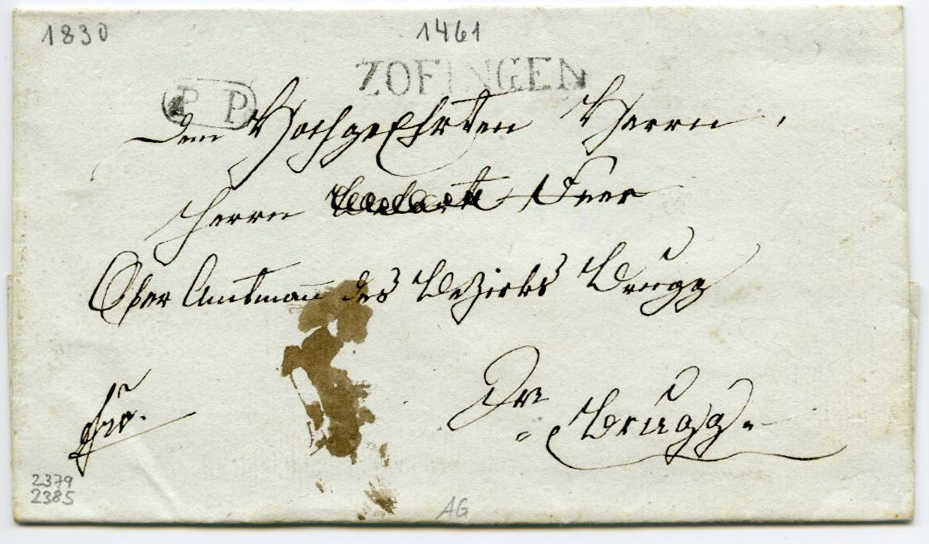 1830
1461
ZOFINGEN
P P
Dem Hochgeehrten Herrn,
Herrn Feer
Ober Amtmann des Bezirks Brugg
In
Brugg
2379
2385
AG